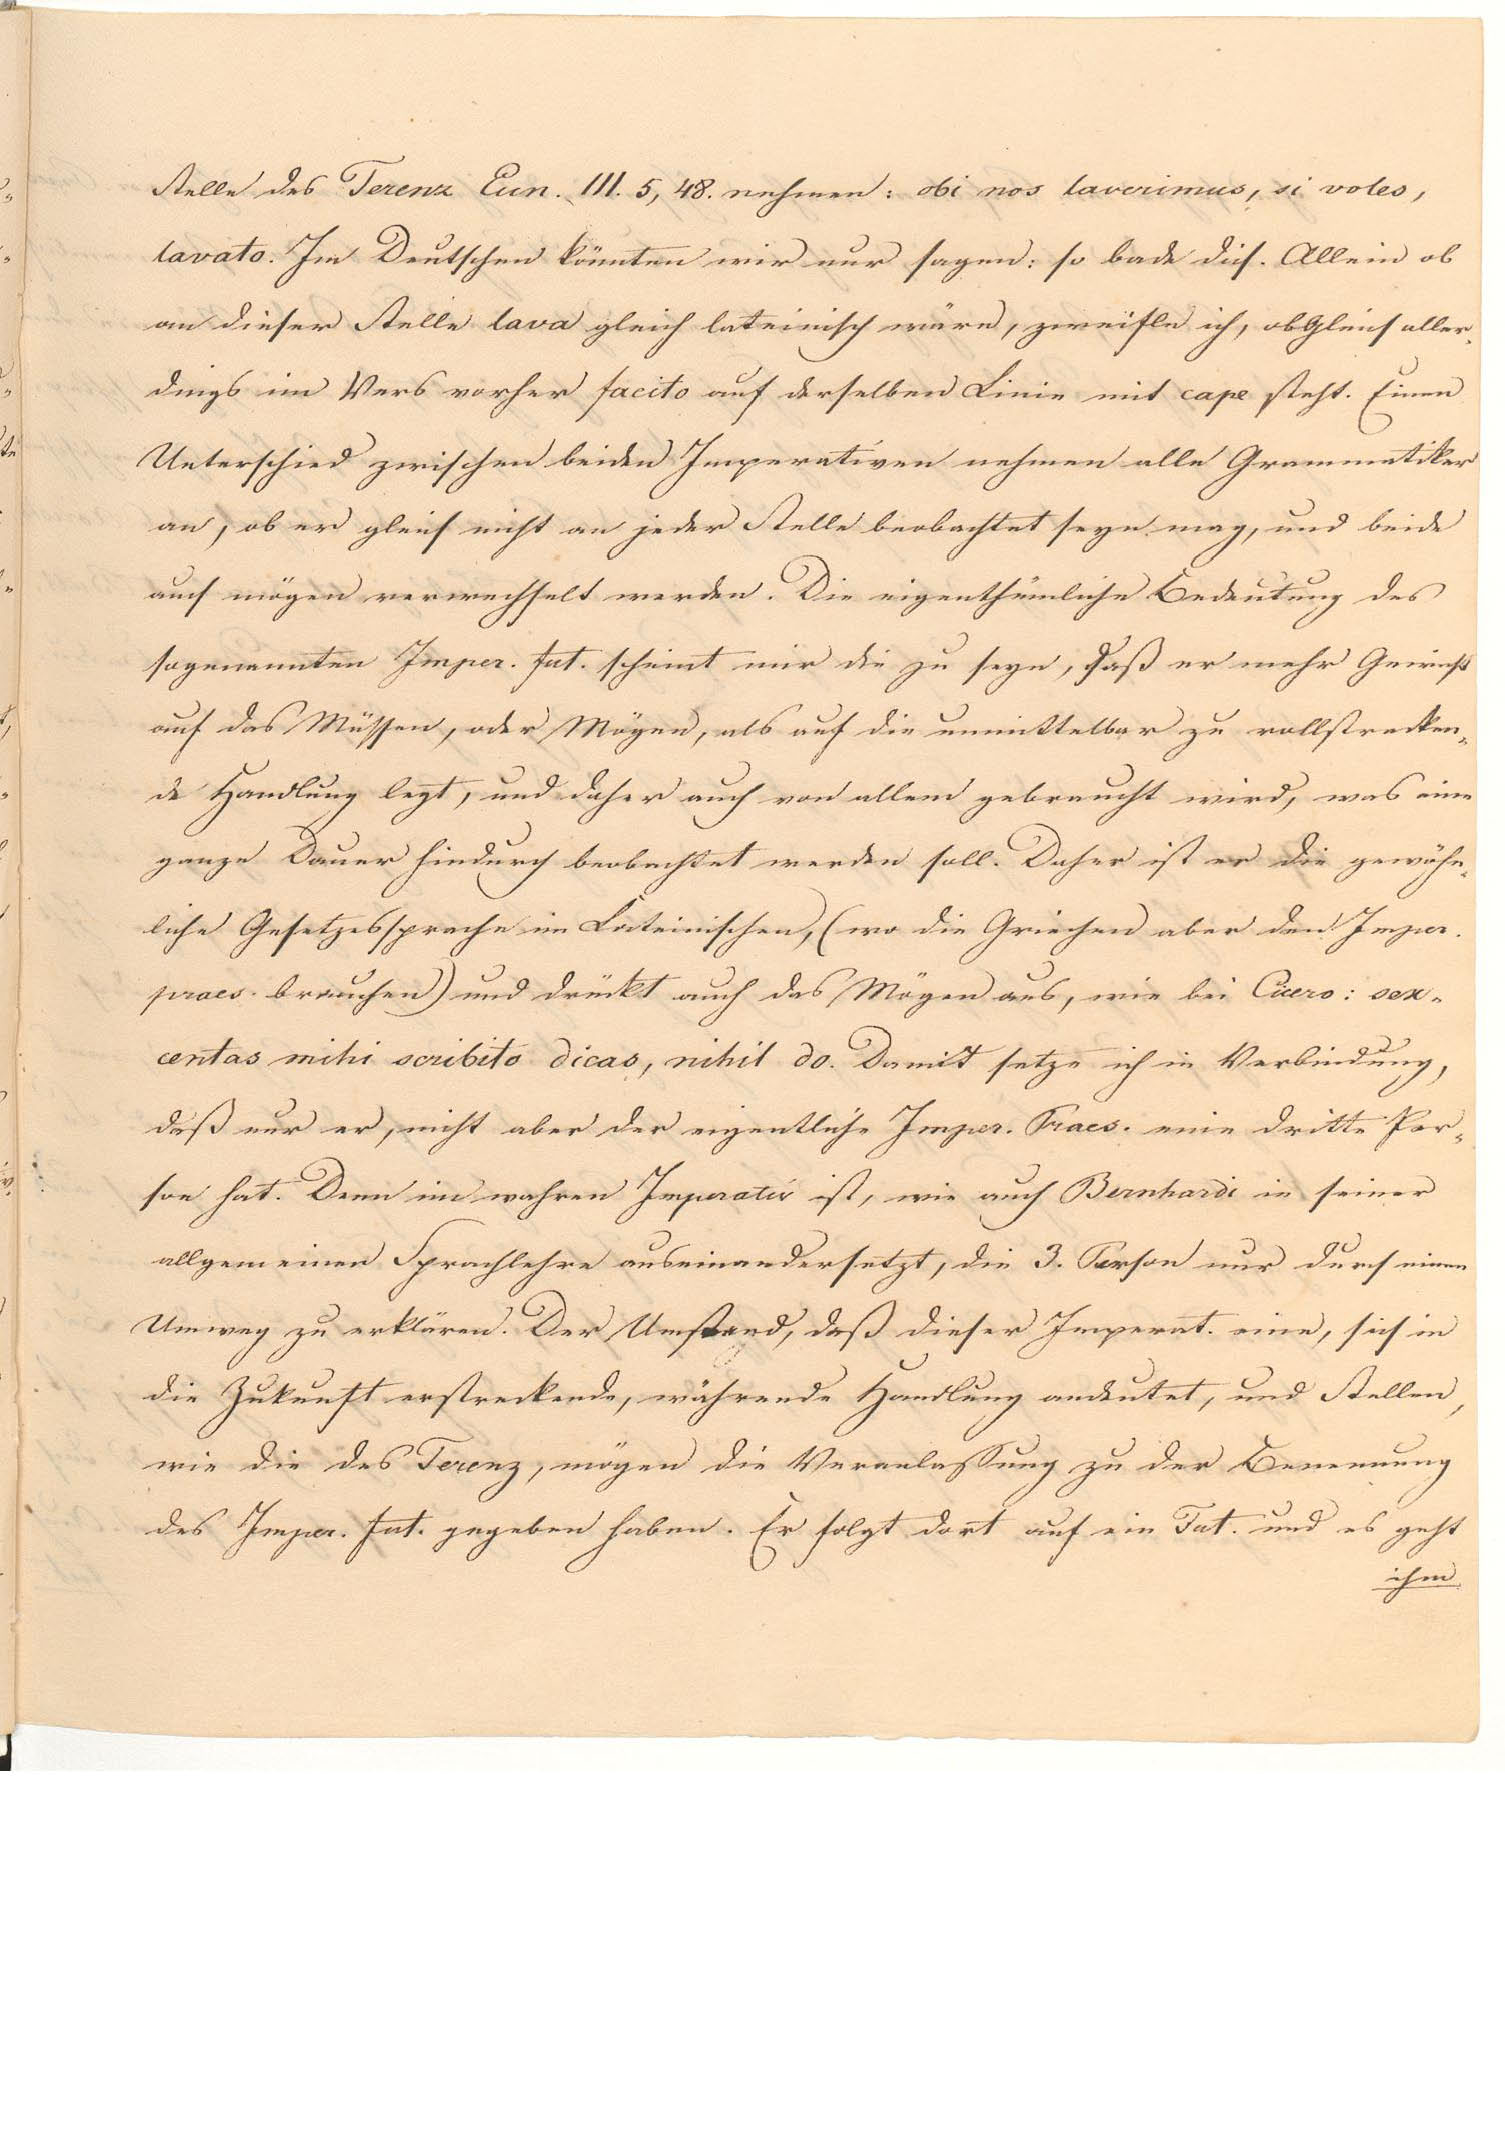 Stelle des Terenz Eun. III. 5, 48. nehmen: obi nos laverimus, si voles,
lavato. Im Deutschen könnten wir nur sagen: so bade dich. Allein ob
an dieser Stelle lava gleich lateinisch wäre, zweifle ich, obgleich aller-
dings im Vers vorher facito auf derselben Linie mit cape steht. Einen
Unterschied zwischen beiden Imperativen nehmen alle Grammatiker
an, ob er gleich nicht an jeder Stelle beobachtet seyn mag, und beide
auch mögen verwechselt werden. Die eigenthümliche Bedeutung des
sogenannten Imper. fut. scheint mir die zu seyn, daß er mehr Gewicht
auf das Müssen, oder Mögen, als auf die unmittelbar zu vollstrecken-
de Handlung legt, und daher auch von allem gebraucht wird, was eine
ganze Dauer hindurch beobachtet werden soll. Daher ist er die gewöhn-
liche Gesetzessprache im Lateinischen, (wo die Griechen aber den Imper.
praes. brauchen) und drückt auch das Mögen aus, wie bei Cicero: sex-
centas mihi scribito dicas, nihil do. Damit setze ich in Verbindung,
daß nur er, nicht aber der eigentliche Imper. Praes. eine dritte Per-
son hat. Denn im wahren Imperativ ist, wie auch Bernhardi in seiner
allgemeinen Sprachlehre auseinandersetzt, die 3. Person nur durch einen
Umweg zu erklären. Der Umstand, daß dieser Imperat. eine, sich in
die Zukunft erstreckende, währende Handlung andeutet, und Stellen,
wie die des Terenz, mögen die Veranlassung zu der Benennung
des Imper. fut. gegeben haben. Er folgt dort auf ein Fut. und es geht
ihm